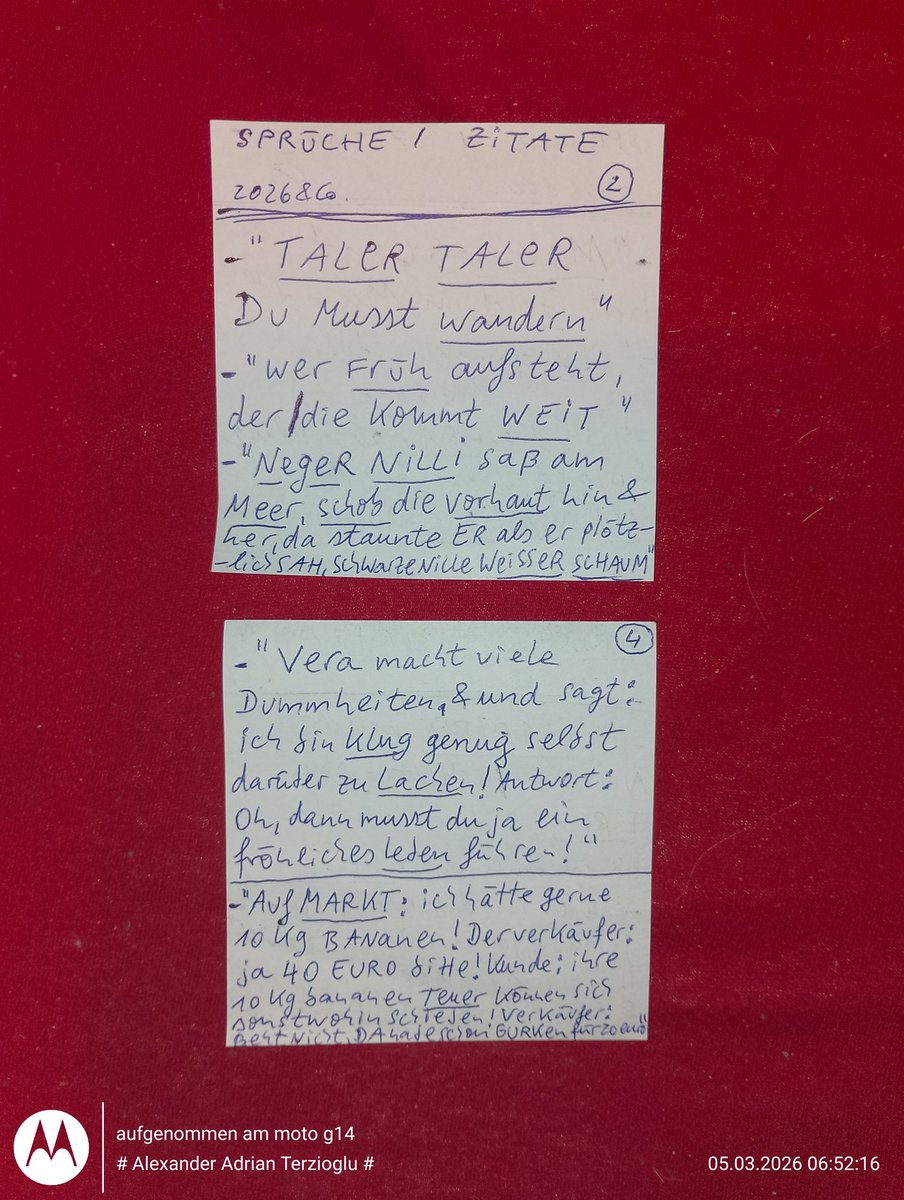 SPRÜCHE / ZITATE
2026 & Co.
2
- "TALER TALER
DU Musst wandern"
- "wer FRÜH aufsteht,
der/die kommt WEIT"
- "NegeR NILLi saß am
Meer, schob die vorhaut hin &
her, da staunte ER als er plötz-
-lich SAH, schwarze Nille WeisseR SCHAUM"
4
- "Vera macht viele
Dummheiten, & und sagt:
ich bin klug genug selbst
darüber zu Lachen! Antwort:
Oh, dann musst du ja ein
fröhliches leben führen!"
- "Auf MARKT: ich hätte gerne
10 kg BANanen! Der verkäufer:
ja 40 EURO bitte! Kunde: ihre
10 kg bananen Teuer können sich
sonstwohin schieben! Verkäufer:
geht Nicht, DA habe schon GURKEN für 20 euro"
aufgenommen am moto g14
# Alexander Adrian Terzioglu #
05.03.2026 06:52:16